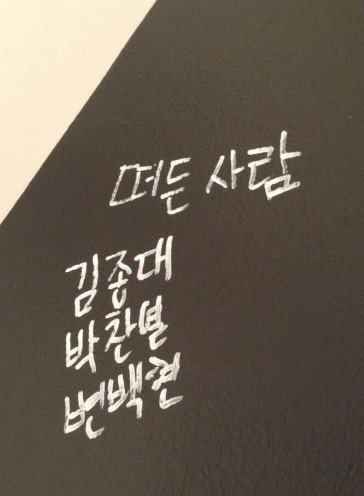 떠든 사람
김종대
박찬별
변백현